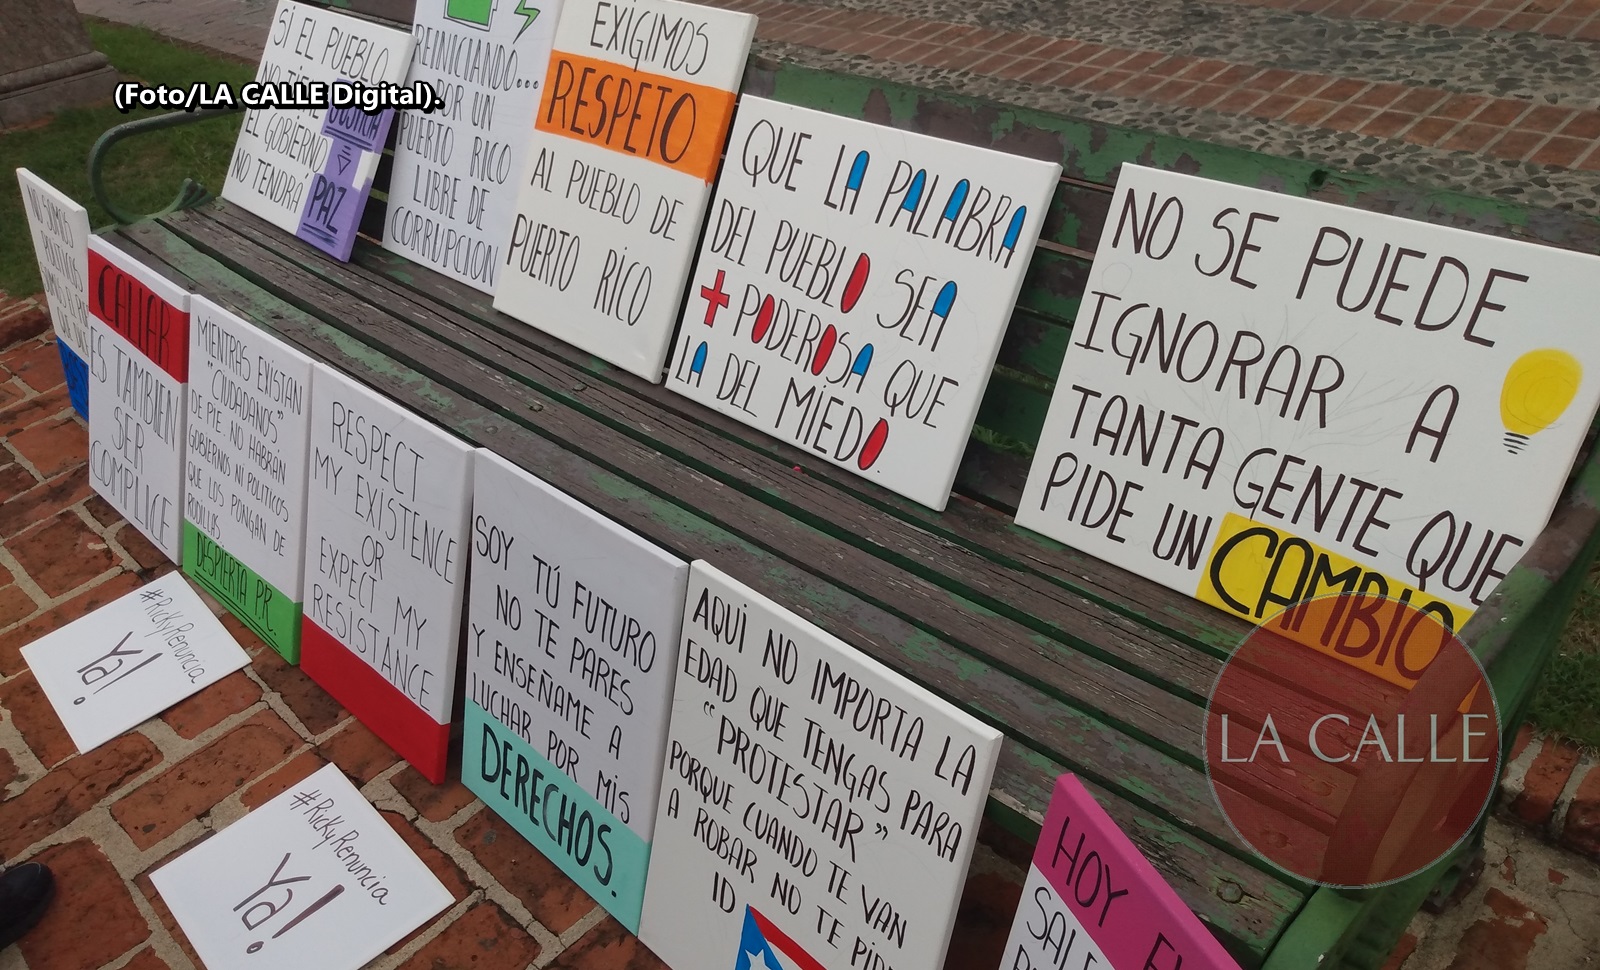 (Foto/LA CALLE Digital).
SI EL PUEBLO
NO TIENE
JUSTICIA
EL GOBIERNO
NO TENDRÁ
PAZ
REINICIANDO...
POR UN
PUERTO RICO
LIBRE DE
CORRUPCION
EXIGIMOS
RESPETO
AL PUEBLO DE
PUERTO RICO
QUE LA PALABRA
DEL PUEBLO SEA
+ PODEROSA QUE
LA DEL MIEDO.
NO SE PUEDE
IGNORAR A
TANTA GENTE QUE
PIDE UN CAMBIO
NO SOMOS
CALLAR
ES TAMBIÉN
SER
COMPLICE
MIENTRAS EXISTAN
"CIUDADANOS"
DE PIE, NO HABRAN
GOBIERNOS NI POLITICOS
QUE LOS PONGAN DE
RODILLAS
DESPIERTA P.R.
RESPECT
MY EXISTENCE
OR
EXPECT MY
RESISTANCE
SOY TÚ FUTURO
NO TE PARES
Y ENSEÑAME A
LUCHAR POR MIS
DERECHOS.
AQUI NO IMPORTA LA
EDAD QUE TENGAS PARA
"PROTESTAR"
PORQUE CUANDO TE VAN
A ROBAR NO TE PIDEN
ID
HOY
SALE
#RickyRenuncia
Ya!
#RickyRenuncia
Ya!
LA CALLE